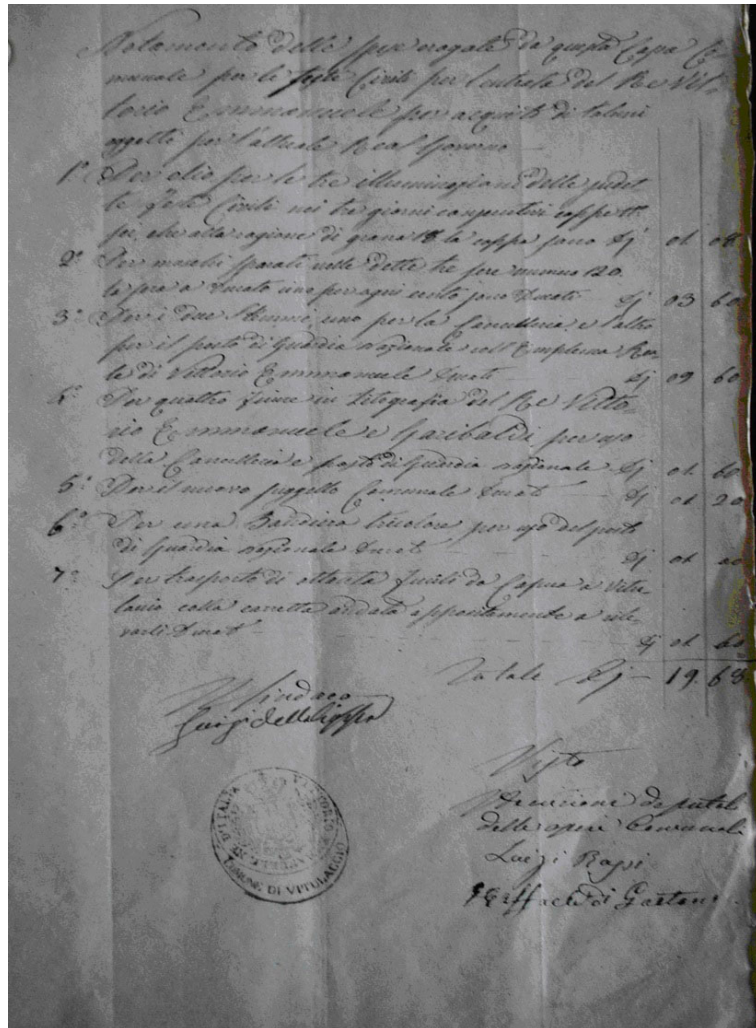 Notamento delle spese erogate da questa Cassa Co=
munale per le feste Civili per l'entrata del Re Vit=
torio Emmanuele per acquisti di taluni
oggetti per l'attuale Real Governo
1.° Per olio per le tre illuminazioni delle
te feste Civili nei tre giorni consecutivi coppe
che alla ragione di grana 18 la coppa sono Dj 01 08
2.° Per maschi sparati nelle dette tre sere numero 120
la sera a ducato uno per ogni cento sono Ducati Dj 03 60
3.° Per i due Stemmi uno per la Cancelleria, e l'altro
per il posto di Guardia nazionale coll'Emplema Rea=
le di Vittorio Emmanuele Ducati Dj 09 60
4.° Per quattro in Litografia del Re Vitto=
rio Emmanuele e Garibaldi per uso
della Cancelleria e posto di Guardia nazionale Dj 01 60
5.° Per il nuovo suggello Comunale Ducat Dj 01 20
6.° Per una Bandiera tricolore per uso del posto
di Guardia nazionale Ducat Dj 01 00
7.° Per trasporto di ottanta fucili da Capua a Vitu=
lazio colla carretta andata appositamente a rile=
varli Ducat Dj 01 60
Totale Dj 19. 68
Il Sindaco
Luigi
Visto
deputat
delle opere Comunali
Luigi
di Gaetano
VITTORIO EMANUELE RE D'ITALIA
COMUNE DI VITULACCIO